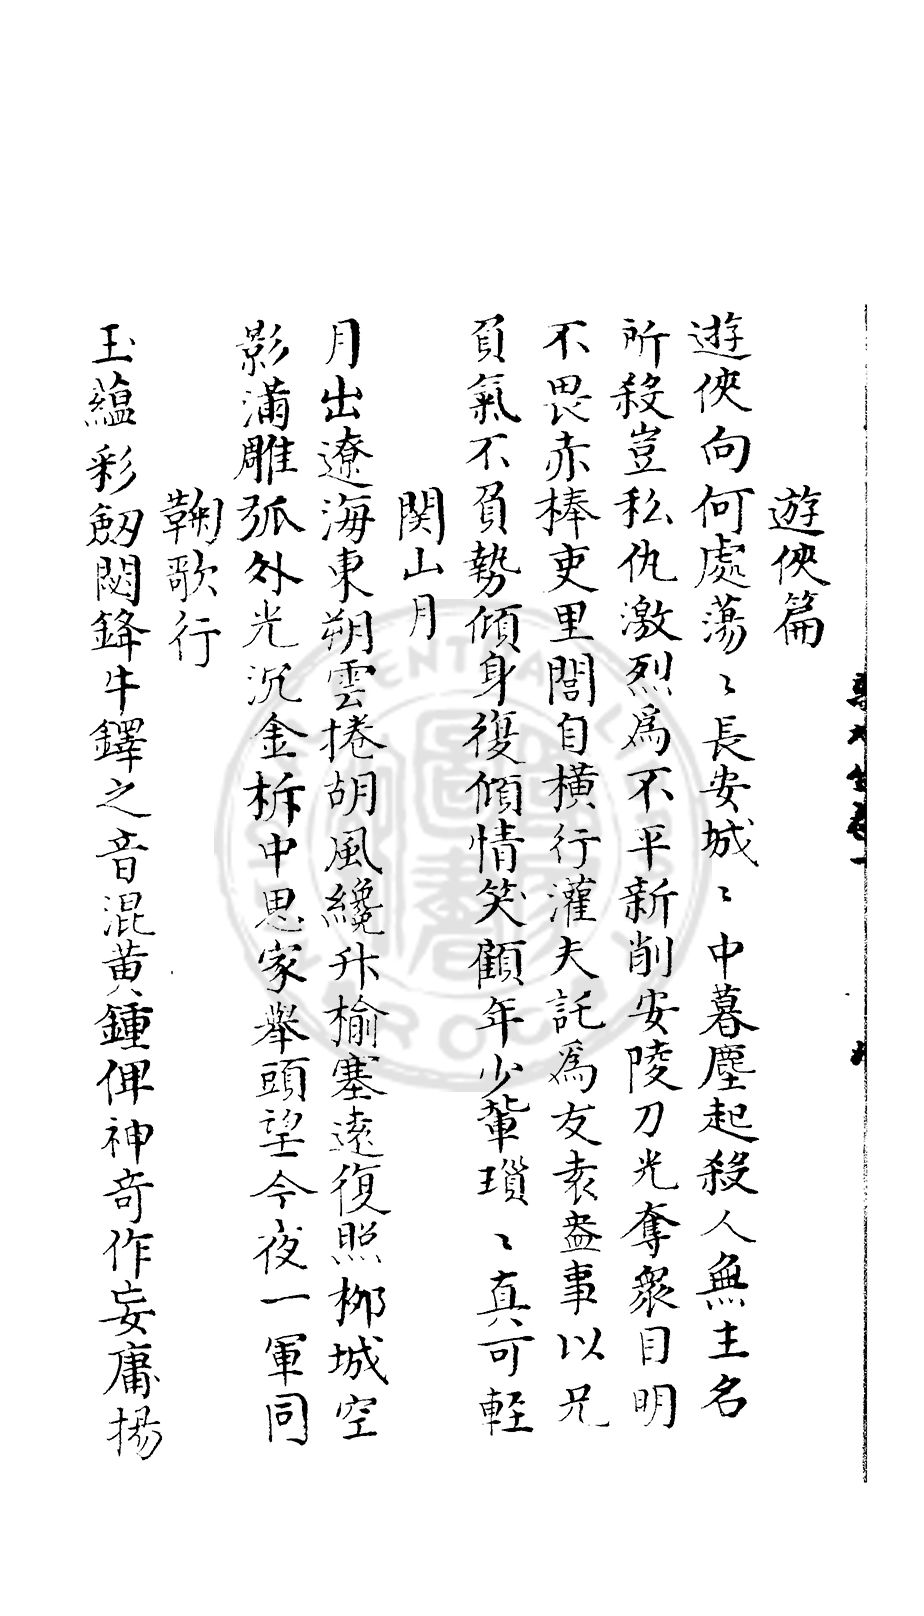 遊俠篇
遊俠向何處蕩〻長安城〻中暮塵起殺人無主名
所殺豈私仇激烈為不平新削安陵刀光奪衆目明
不畏赤棒吏里閭自橫行灌夫託為友袁盎事以兄
負氣不負勢傾身復傾情笑顧年少輩瑣〻真可輕
関山月
月出遼海東朔雲捲胡風纔升榆塞遠復照柳城空
影滿雕弧外光沉金柝中思家舉頭望今夜一軍同
鞠歌行
玉蘊彩劔閟鋒牛鐸之音混黄鍾俾神竒作妄庸揚